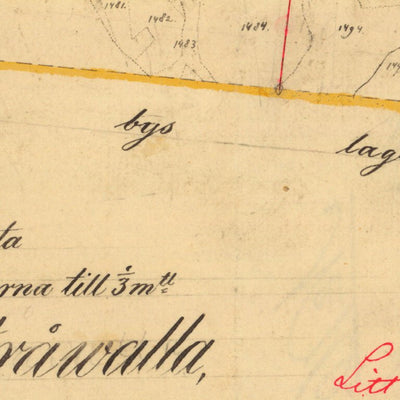 1481.
1482
1483
1484.
1494.
bys
lag
ta
rna till ⅓ mtl
råwalla,
Litt